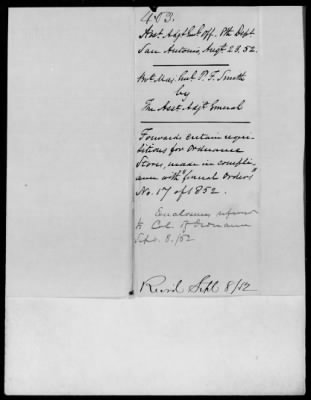 453.
Asst. Adjt. Genl. Off. 8th Dept
San Antonio, Augt. 23. 52.
Bvt. Maj. Genl. P. F. Smith
by
The Asst. Adjt. General
Forwards certain requi-
sitions for Ordnance
Stores, made in compli-
ance with "General Orders"
No. 17 of 1852.
Enclosures referred
to Col. of Ordnance
Sept. 8. /52
Recvd Sept 8/52